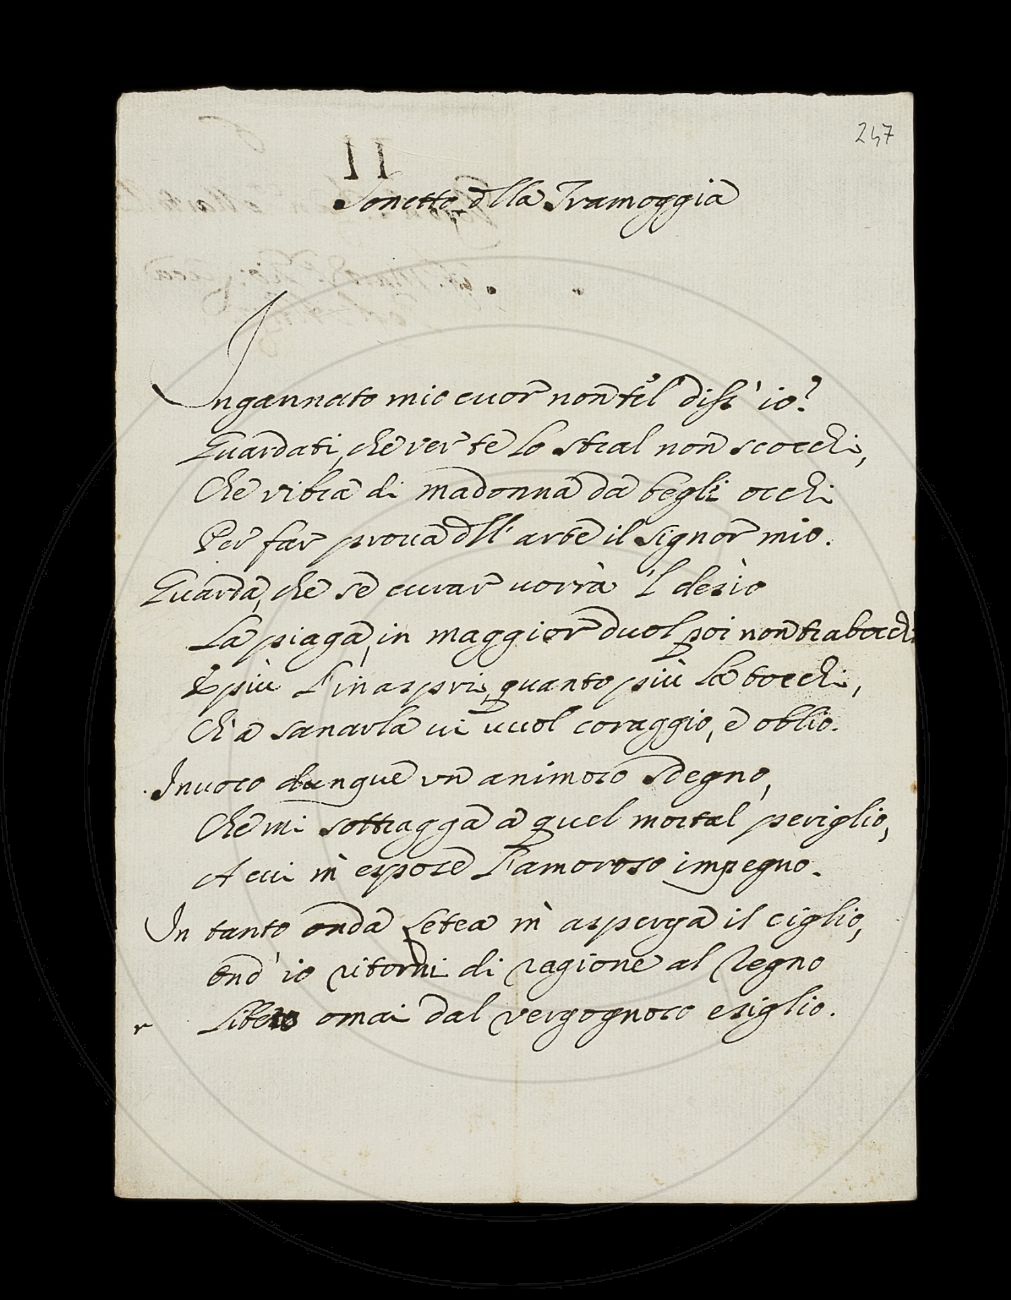 247
II
Sonetto dlla Tramoggia
Ingannato mio cuor non te'l diss' io?
Guardati, che ver te lo stral non scocchi,
Che vibra di madonna da begli occhi
Per far prova dll' arte il signor mio.
Guarda, che se curar vorrà 'l desio
La piaga, in maggior duol poi non trabocchi
E più l'inaspri, quanto più la tocchi,
Ch'a sanarla vi vuol coraggio, e oblio.
Invoco dunque un animoso sdegno,
Che mi sottragga a quel mortal periglio,
A cui m' espose l'amoroso impegno.
In tanto onda Letea m' asperga il ciglio,
Ond' io ritorni di ragione al regno
Libero omai dal vergognoso esiglio.